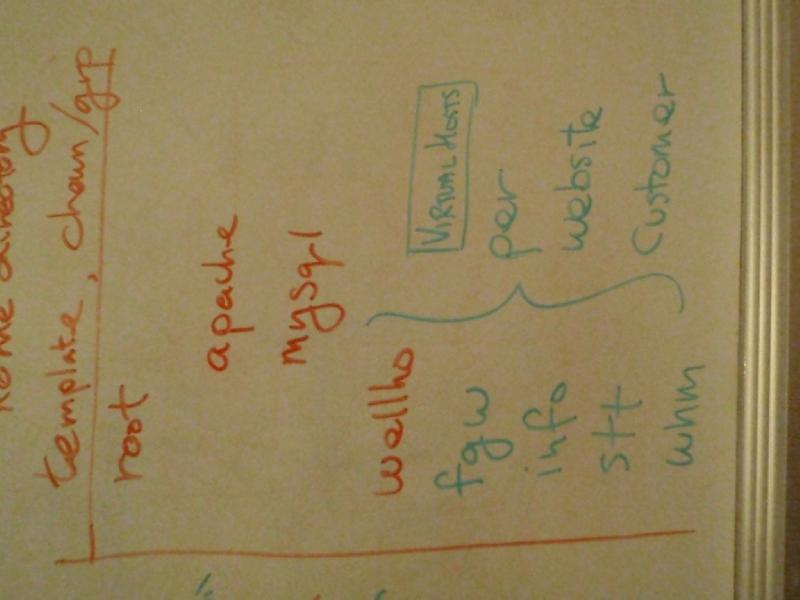 home directory
template, chown/grp
root
apache
mysql
wellho
fgw
info
stt
whm
VIRTUAL HOSTS
per
website
customer